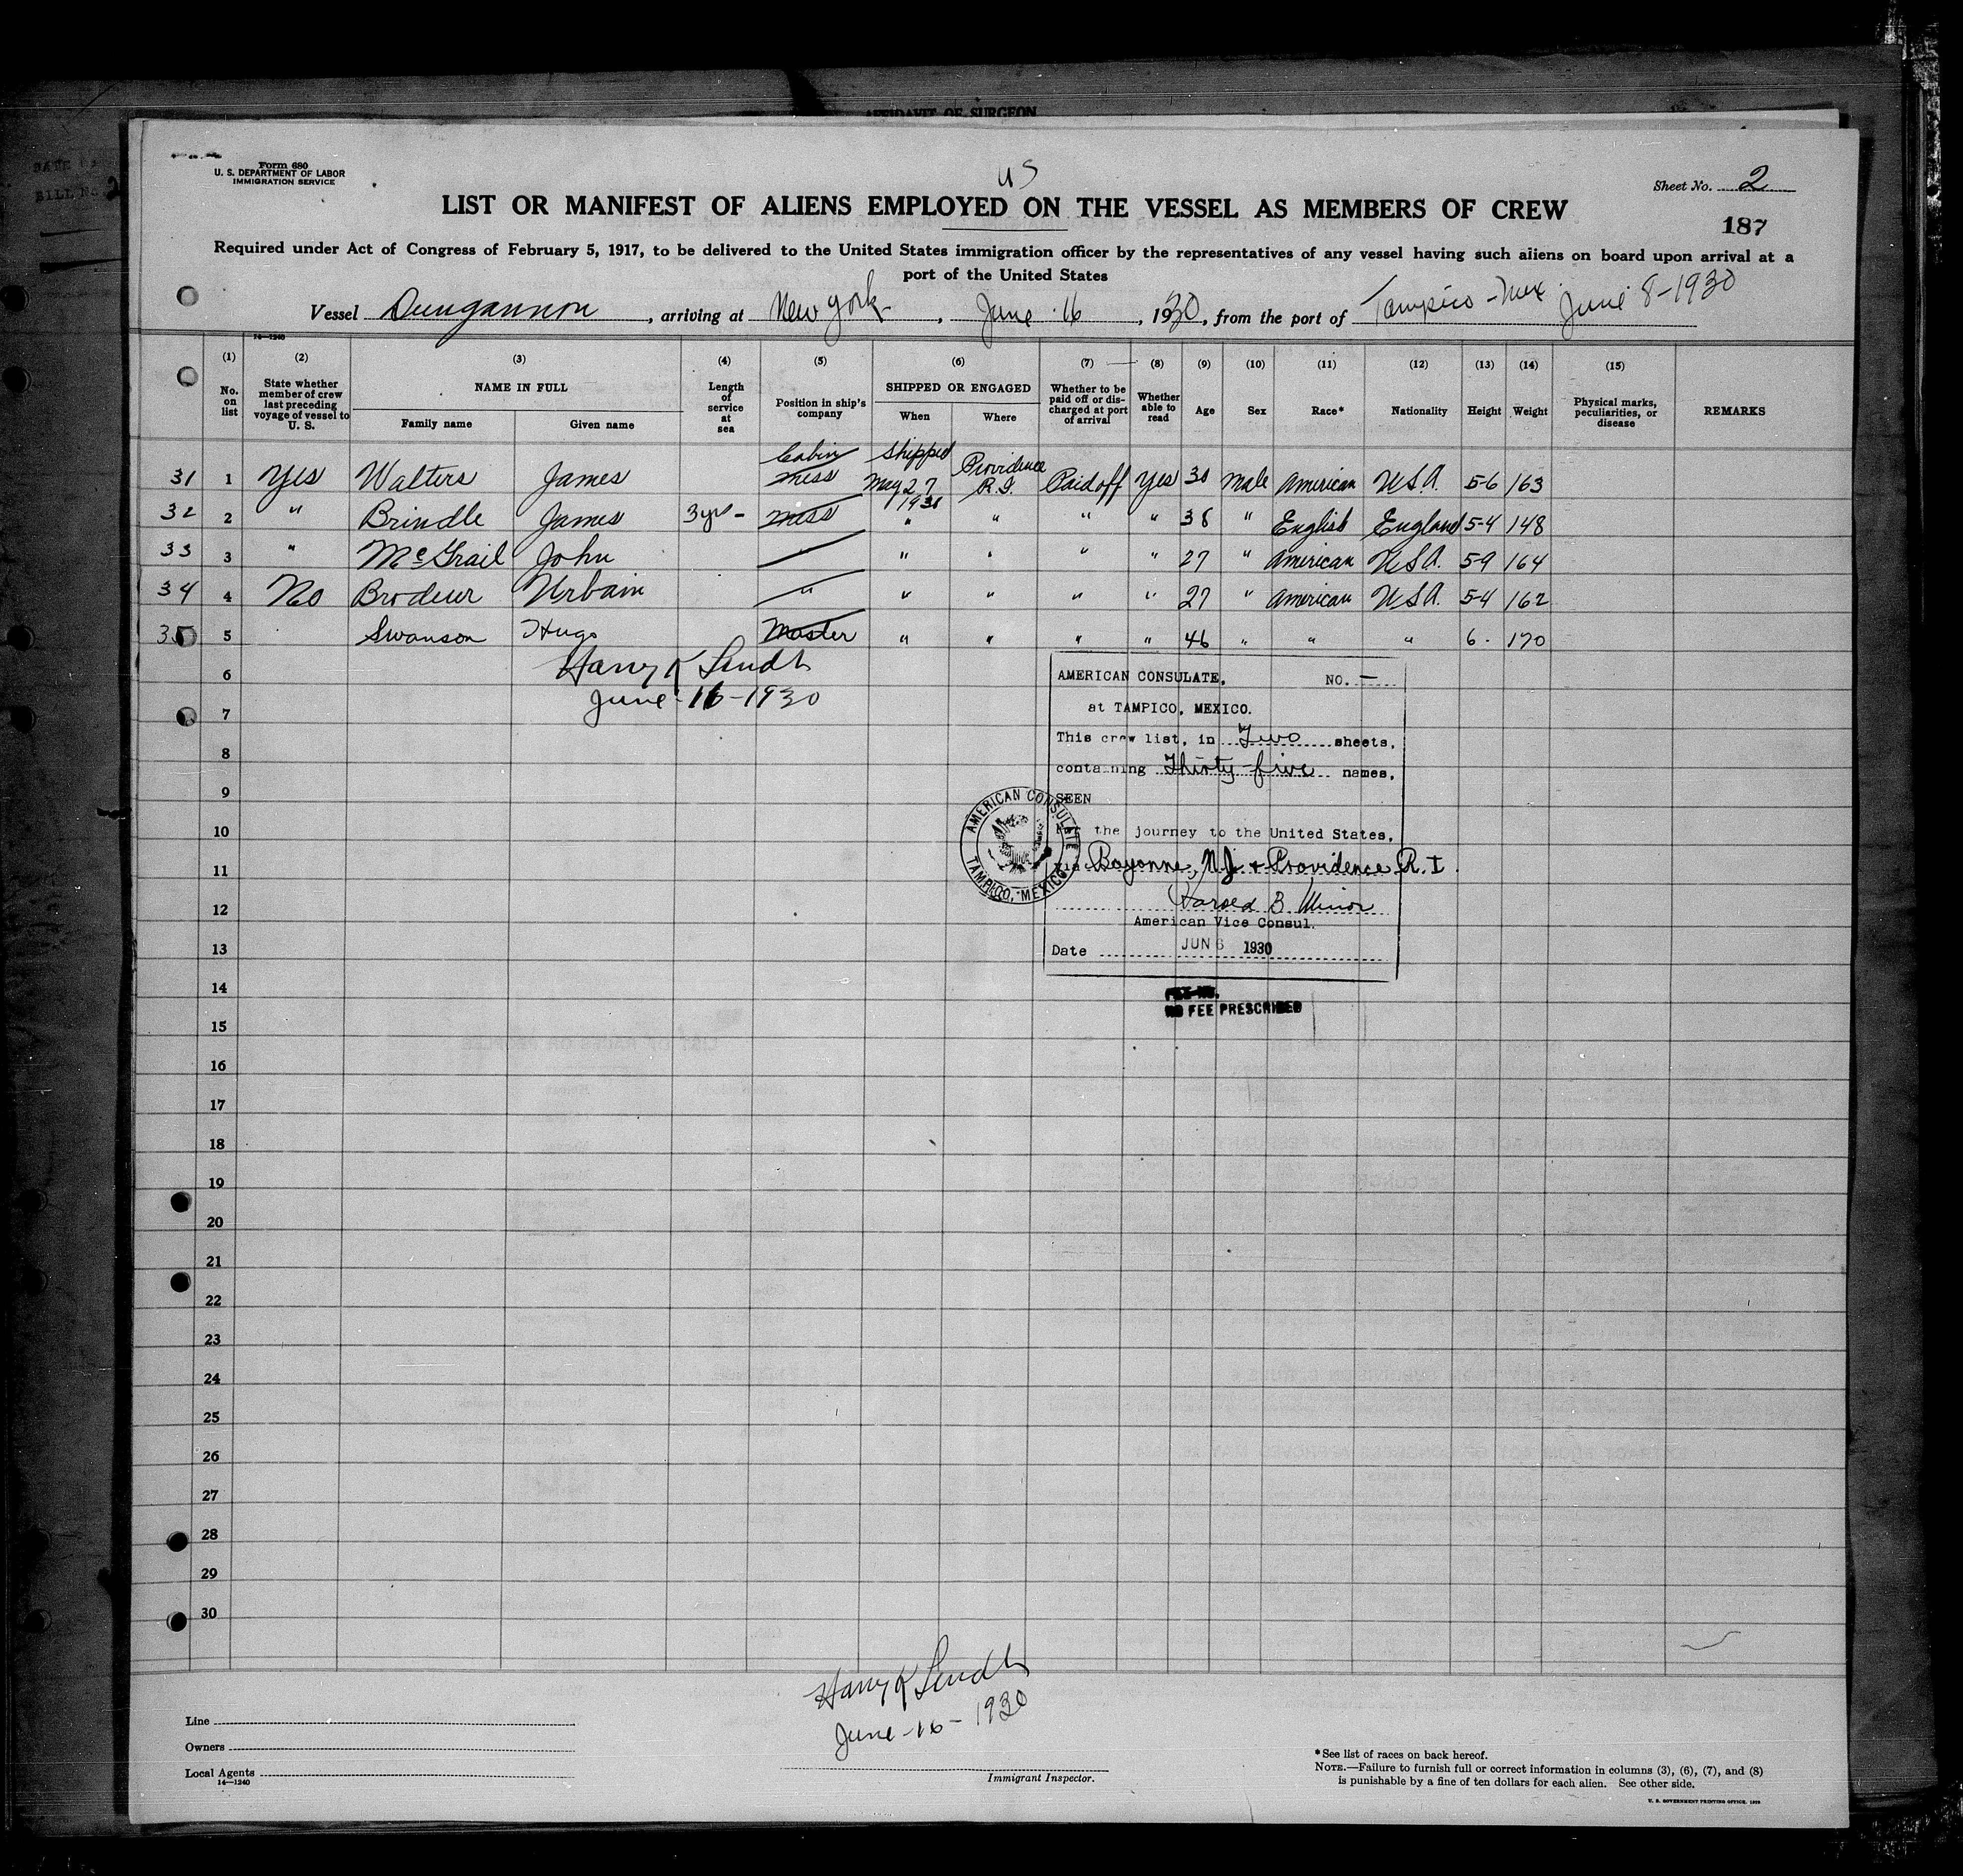 AFFIDAVIT OF SURGEON
Form 680
U. S. DEPARTMENT OF LABOR
IMMIGRATION SERVICE
US
Sheet No. 2
LIST OR MANIFEST OF ALIENS EMPLOYED ON THE VESSEL AS MEMBERS OF CREW
187
Required under Act of Congress of February 5, 1917, to be delivered to the United States immigration officer by the representatives of any vessel having such aliens on board upon arrival at a
port of the United States
Vessel Dungannon, arriving at New York, June 16, 1930, from the port of Tampico - Mex June 8-1930
14—1240
(1) (2) (3) (4) (5) (6) (7) (8) (9) (10) (11) (12) (13) (14) (15)
No. on list State whether member of crew last preceding voyage of vessel to U. S. NAME IN FULL Family name Given name Length of service at sea Position in ship's company SHIPPED OR ENGAGED When Where Whether to be paid off or discharged at port of arrival Whether able to read Age Sex Race* Nationality Height Weight Physical marks, peculiarities, or disease REMARKS
31 1 Yes Walters James Cabin mess Shipped May 27 1930 Providence R.I. Paid off Yes 30 male American U.S.A. 5-6 163
32 2 " Brindle James 3 yrs - mess " " " " 38 " English England 5-4 148
33 3 " McGrail John " " " " " 27 " American U.S.A. 5-9 164
34 4 No Brodeur Urbain " " " " " 27 " American U.S.A. 5-4 162
35 5 Swanson Hugo Master " " " " 46 " " " 6 - 170
6 Harry K Lindh
7 June-16-1930
8
9
10
11
12
13
14
15
16
17
18
19
20
21
22
23
24
25
26
27
28
29
30
AMERICAN CONSULATE, NO. —
at TAMPICO, MEXICO.
This crew list, in Two sheets,
containing Thirty-five names,
SEEN
the journey to the United States,
via Bayonne, N.J. + Providence R.I.
Harold B. Minor
American Vice Consul.
Date JUN 6 1930
AMERICAN CONSULATE
TAMPICO, MEXICO
NO FEE PRESCRIBED
Harry K Lindh
June-16-1930
Line
Owners
Local Agents
14—1240
Immigrant Inspector.
*See list of races on back hereof.
NOTE.—Failure to furnish full or correct information in columns (3), (6), (7), and (8)
is punishable by a fine of ten dollars for each alien. See other side.
U. S. GOVERNMENT PRINTING OFFICE: 1929